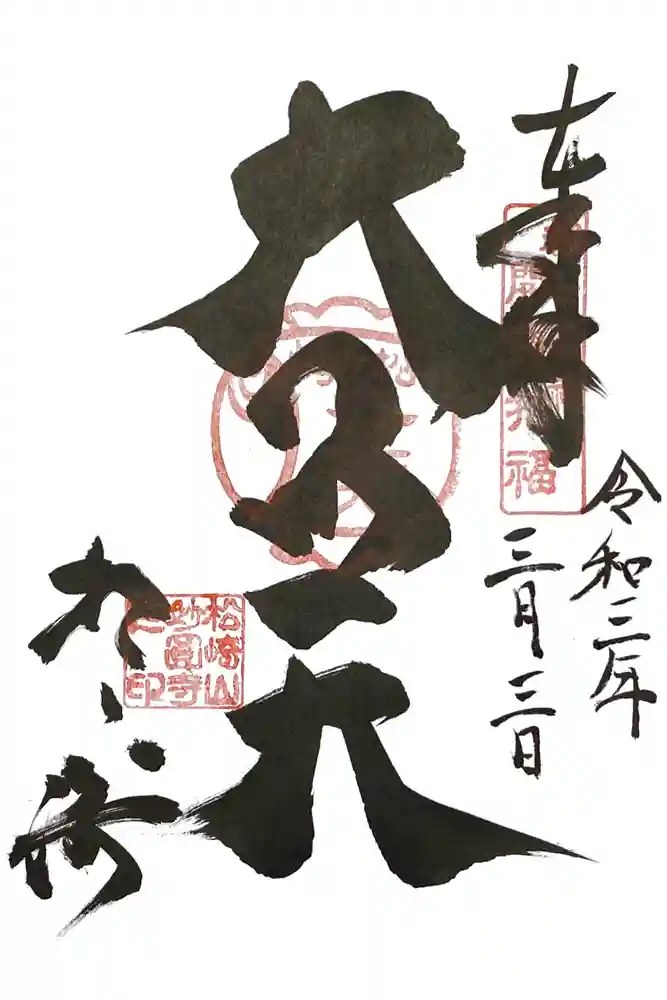 奉拝
令和三年
三月三日
大黒天
松ヶ崎
松崎山
妙圓寺
之印